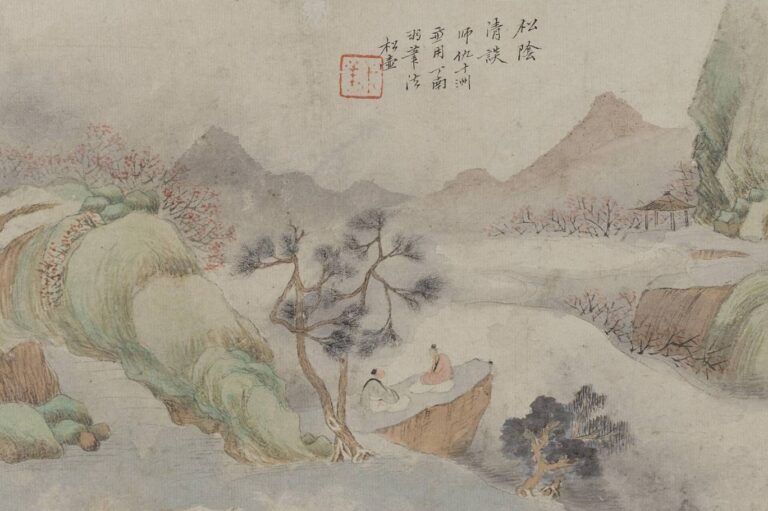 松陰
清談
師仇十洲
用丁南
羽筆法
松壺